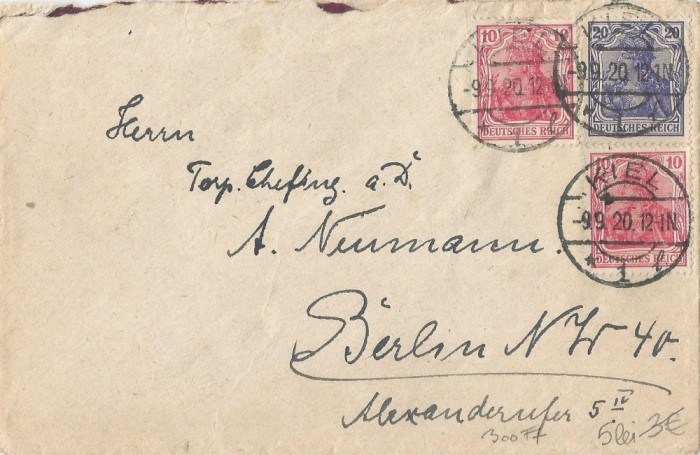 10 10
DEUTSCHES REICH
-9.9.20.12-1N
20 20
DEUTSCHES REICH
-9.9.20.12-1N
10
DEUTSCHES REICH
KIEL
-9.9.20.12-1N
* 1 l
Herrn
Torp. Chefing. a. D.
A. Neumann.
Berlin NW 40.
Alexanderufer 5 IV
300Ft
5lei 3€